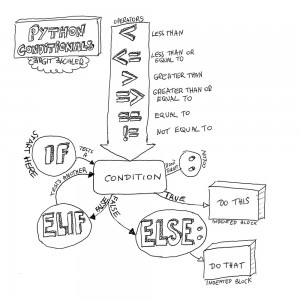 PYTHON
CONDITIONALS
OPERATORS
< LESS THAN
<= LESS THAN OR
EQUAL TO
> GREATER THAN
>= GREATER THAN OR
EQUAL TO
== EQUAL TO
!= NOT EQUAL TO
START HERE
IF
TESTS A
CONDITION
DON'T
FORGET
TESTS ANOTHER
ELIF
FALSE
FALSE
ELSE :
TRUE
DO THIS
INDENTED BLOCK
DO THAT
INDENTED BLOCK